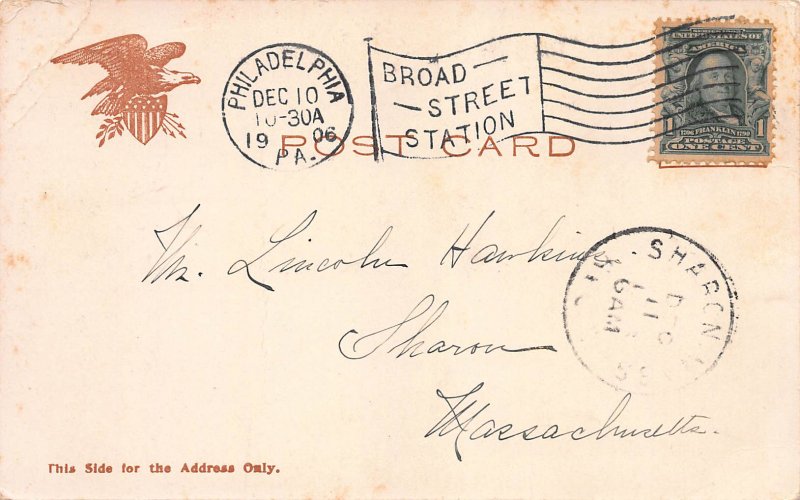 PHILADELPHIA
DEC 10
10-30A
19 06
PA.
BROAD
STREET
STATION
POST CARD
SERIES 1902
UNITED STATES OF
AMERICA
1 1
1706 FRANKLIN 1790
POSTAGE
ONE CENT
Mr. Lincoln Hawkins
Sharon
Massachusetts.
SHARON
DEC
11
6 AM
This Side for the Address Only.